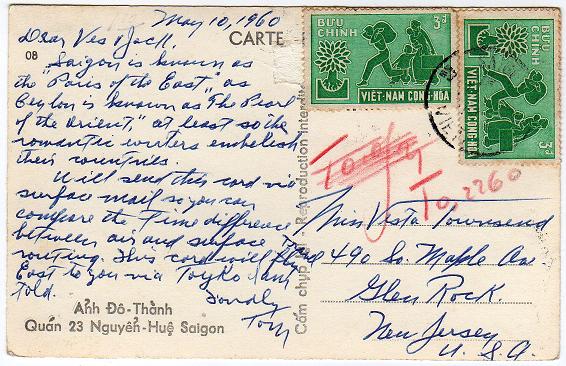 May 10, 1960
Dear Ves & Jack.
Saigon is known as
the "Paris of the East," as
Ceylon is known as the "Pearl
of the Orient," at least so the
romantic writers embelesh
their countries.
Will send this card via
surface mail so you can
compare the time difference
between air and surface
routing. This card will fly
East to you via Toyko I am
told.
Fondly
Tom
08
Ảnh Đô-Thành
Quán 23 Nguyễn-Huệ Saigon
CARTE
Cấm chụp lại - Reproduction interdite
BƯU CHÍNH
3đ
VIỆT-NAM CỘNG-HÒA
BƯU CHÍNH
3đ
VIỆT-NAM CỘNG-HÒA
To, 2260
Miss Vesta Townsend
490 So. Maple Ave
Glen Rock.
New Jersey
U.S.A.